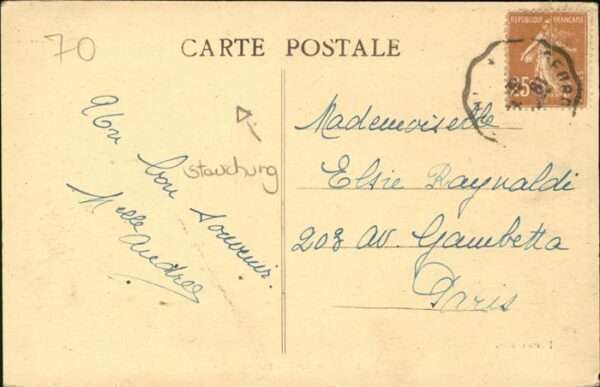 70
CARTE POSTALE
REPUBLIQUE FRANÇAISE
25
bon
souvenir.
Melle
Andrée
stauchung
Mademoiselle
Elsie Raynaldi
203 Av. Gambetta
Paris